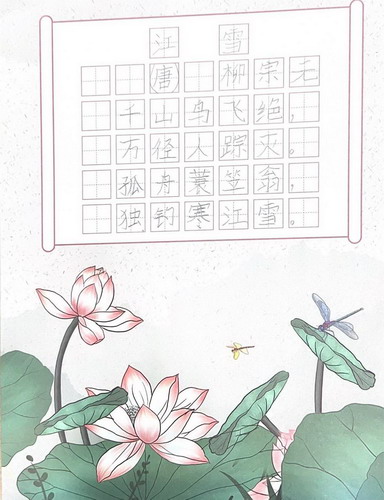 江雪
(唐)柳宗无
千山鸟飞绝,
万径人踪灭。
孤舟蓑笠翁,
独钓寒江雪。